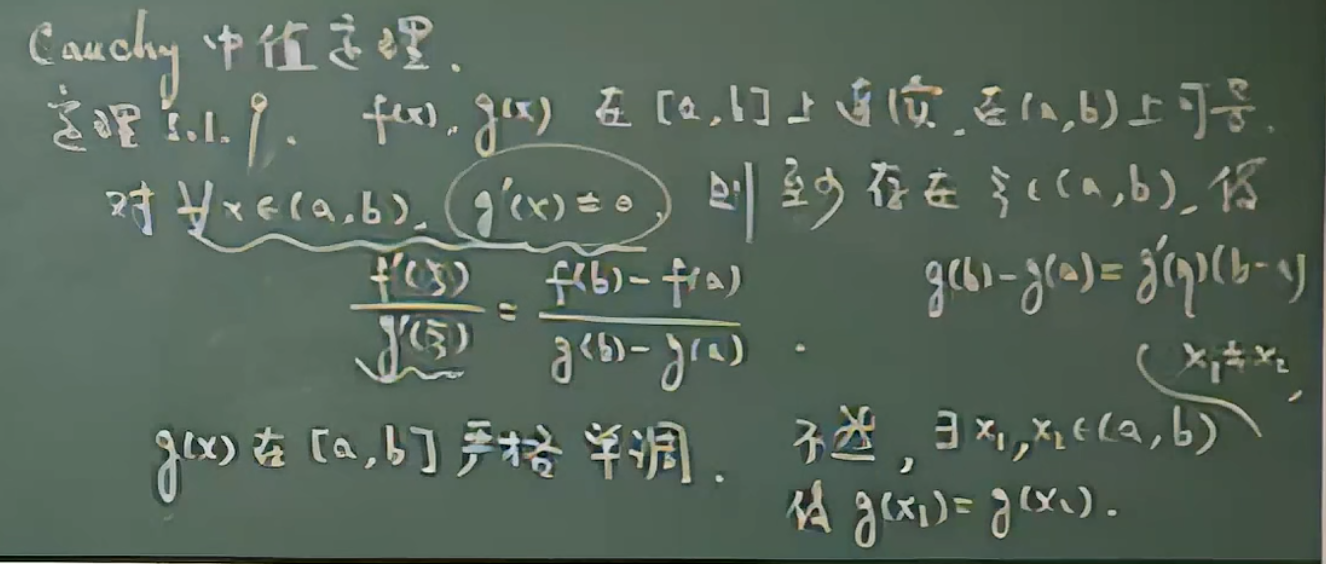 Cauchy 中值定理.
定理 5.1.9. f(x), g(x) 在 [a,b] 上连续. 在(a,b)上可导.
对 ∀x∈(a,b). g'(x)≠0, 则至少存在 ξ∈(a,b), 使
f'(ξ)/g'(ξ) = (f(b)-f(a))/(g(b)-g(a)).
g(b)-g(a)=g'(η)(b-a)
x₁≠x₂,
g(x) 在 [a,b] 严格单调.
不然, ∃x₁,x₂∈(a,b)
使 g(x₁)=g(x₂).